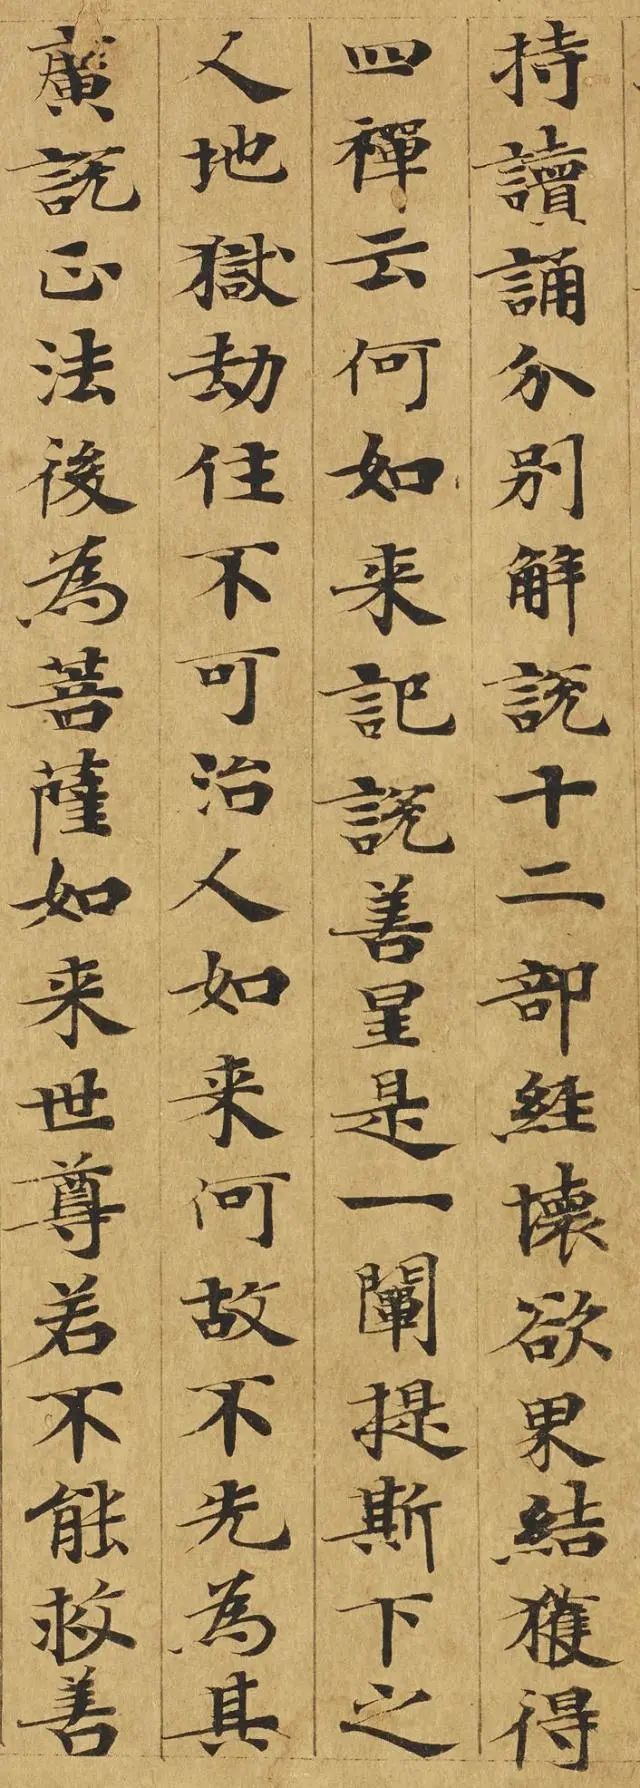 持讀誦分別解説十二部經壞欲界結獲得
四禪云何如来記説善星是一闡提斯下之
人地獄劫住不可治人如来何故不先為其
廣説正法後為菩薩如来世尊若不能救善